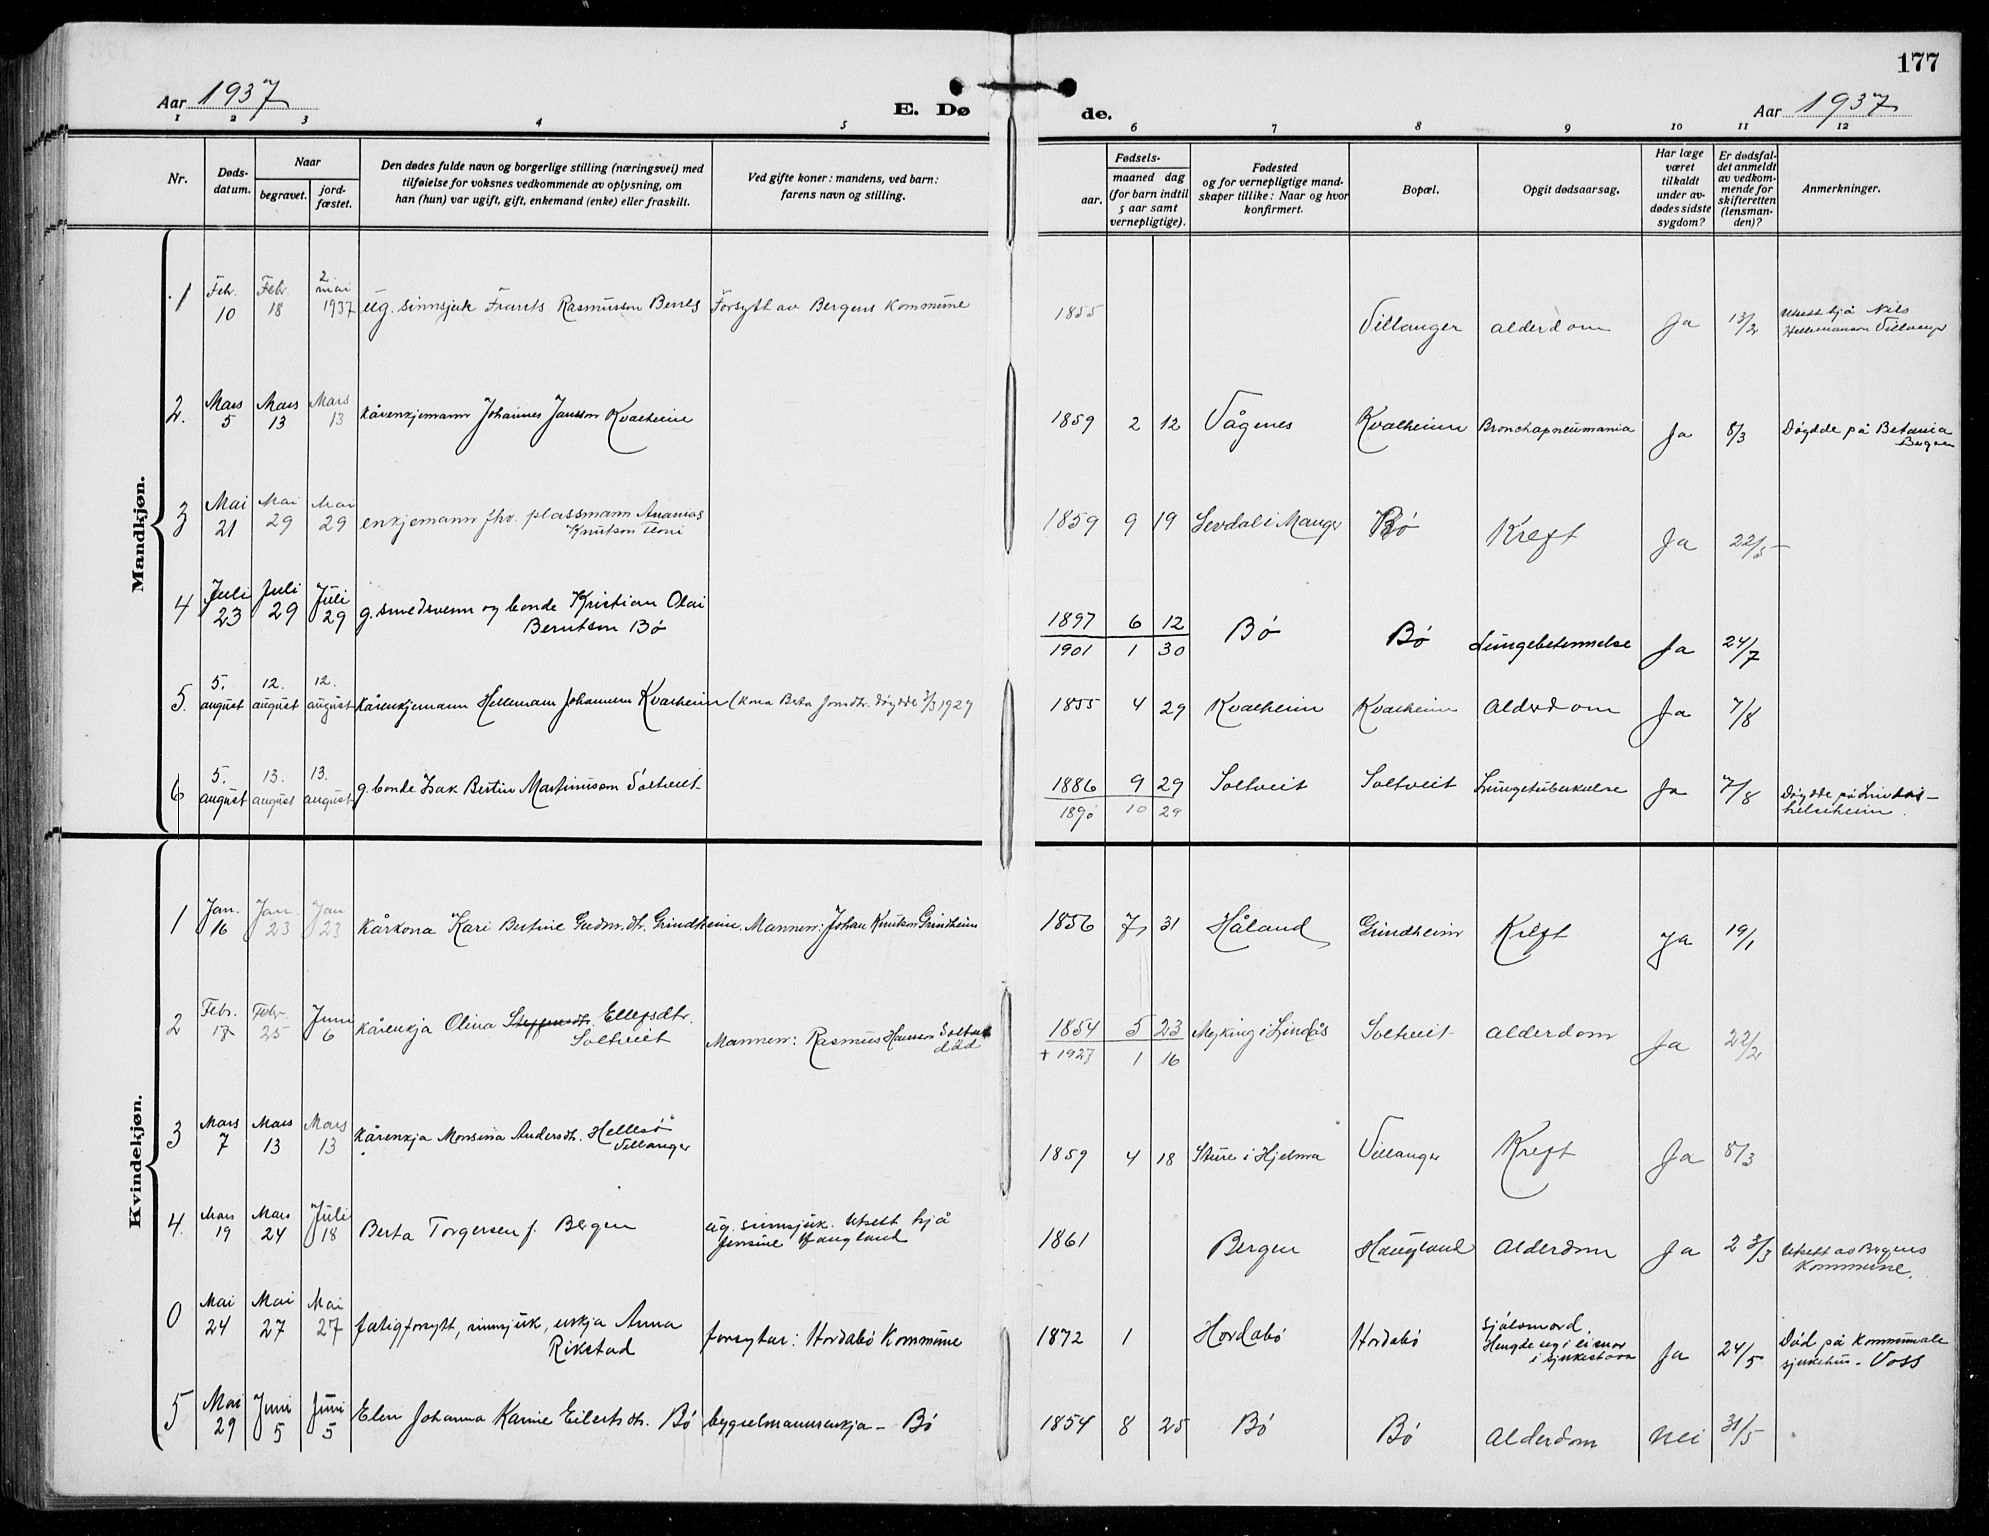 177
Aar 1937
E. Dø
de.
Aar 1937
1 2 3 4 5 6 7 8 9 10 11 12
Nr.
Døds-
datum.
Naar
begravet.
jord-
fæstet.
Den dødes fulde navn og borgerlige stilling (næringsvei) med
tilføielse for voksnes vedkommende av oplysning, om
han (hun) var ugift, gift, enkemand (enke) eller fraskilt.
Ved gifte koner: mandens, ved barn:
farens navn og stilling.
Fødsels-
aar.
maaned dag
(for barn indtil
5 aar samt
vernepligtige).
Fødested
og for vernepligtige mand-
skaper tillike: Naar og hvor
konfirmert.
Bopæl.
Opgit dødsaarsag.
Har læge
været
tilkaldt
under av-
dødes sidste
sygdom?
Er dødsfal-
det anmeldt
av vedkom-
mende for
skifteretten
(lensman-
den)?
Anmerkninger.
Mandkjøn.
1 Feb. 10 Febr. 18 2 mai 1937 ug. sinnsjuk Frants Rasmussen Berres Forsytt av Bergens Kommune 1855 Villanger alderdom Ja 13/2 Utsett hjå Nils
Hellemanson Villanger
2. Mars 5 Mars 13 Mars 13 kårenkjemann Johannes Jansson Kvalheim 1859 2 12 Vågenes Kvalheim Bronchapneumania Ja 8/3 Døydde på Betania
Bergen
3 Mai 21 Mai 29 Mai 29 enkjemann fhv. plassmann Ananias
Knutson 1859 9 19 Sevdal i Manger Bø Kreft Ja 22/5
4 Juli 23 Juli 29 Juli 29 g. smedsvenn og bonde Kristian Olai
Berntson Bø 1897 6 12 Bø Bø Lungebetennelse Ja 24/7
1901 1 30
5. 5. august 12. august 12. august kårenkjemann Helleman Johannesen Kvalheim (kona Berta Jonsdtr. døydde 3/3 1929 1855 4 29 Kvalheim Kvalheim Alderdom Ja 7/8
6 5. august 13. august 13. august g. bonde Isak Bertin Martinusson Soltveit 1886 9 29 Soltveit Soltveit Lungetuberkulose Ja 7/8 Døydde på Lindås
helseheim.
1890 10 29
Kvindekjøn.
1 Jan. 16 Jan. 23 Jan 23 Kårkona Kari Bertine Gudm.dt. Grindheim. Mannen: Johan Knutson Grindheim 1856 7 31 Håland Grindheim Kreft Ja 19/1
2 Febr. 17 Febr. 25 Juni 6 kårenkja Olina Steffensdtr. Ellefsdtr.
Soltveit Mannen: Rasmus Hansson Soltveit
död 1854 5 23 Myking i Lindås Soltveit alderdom Ja 22/2
+ 1927 1 16
3 Mars 7 Mars 13 Mars 13 kårenkja Monsina Andersdt. Hellesö
Villanger 1859 4 18 Sture i Hjelma Villanger Kreft Ja 8/3
4. Mars 19 Mars 24 Juli 18 Berta Torgersen f. Bergen ug. sinnsjuk. Utsett hjå
Jensine Haugland 1861 Bergen Haugland Alderdom Ja 2 3/3 Utsett av Bergens
Kommune.
0 Mai 24 Mai 27 Mai 27 fatigforsytt, sinnsjuk, enkja Anna
Rikstad forsytar: Hordabö Kommune 1872 1 Hordabö Hordabö Sjölvmord
Hengde seg i ei snor
i sjukestova Ja 24/5 Död på Kommunale
sjukehus - Voss
5 Mai 29 Juni 5 Juni 5 Elen Johanna Karine Eilertsdt. Bö bygselmannsenkja - Bö 1854 8 25 Bö Bö Alderdom Nei 31/5